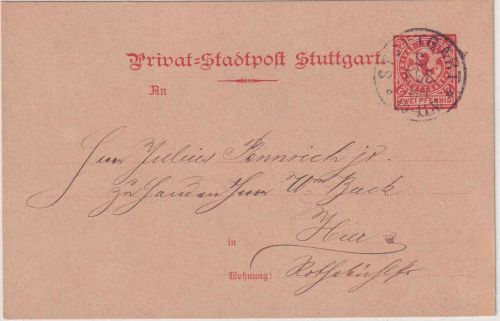 Privat-Stadtpost Stuttgart.
STUTTGART
ZWEI PFENNIG
An
Herrn Julius Jennrich jr.
zu Handen Herrn Wm Back
in Hier
Wohnung: Rothebühlstr